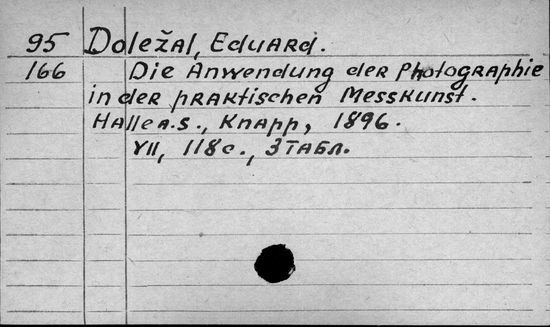 95 Doležal, Eduard.
166 Die Anwendung der Photographie
in der praktischen Messkunst.
Halle a.S., Knapp, 1896.
VII, 118 с., 3 табл.